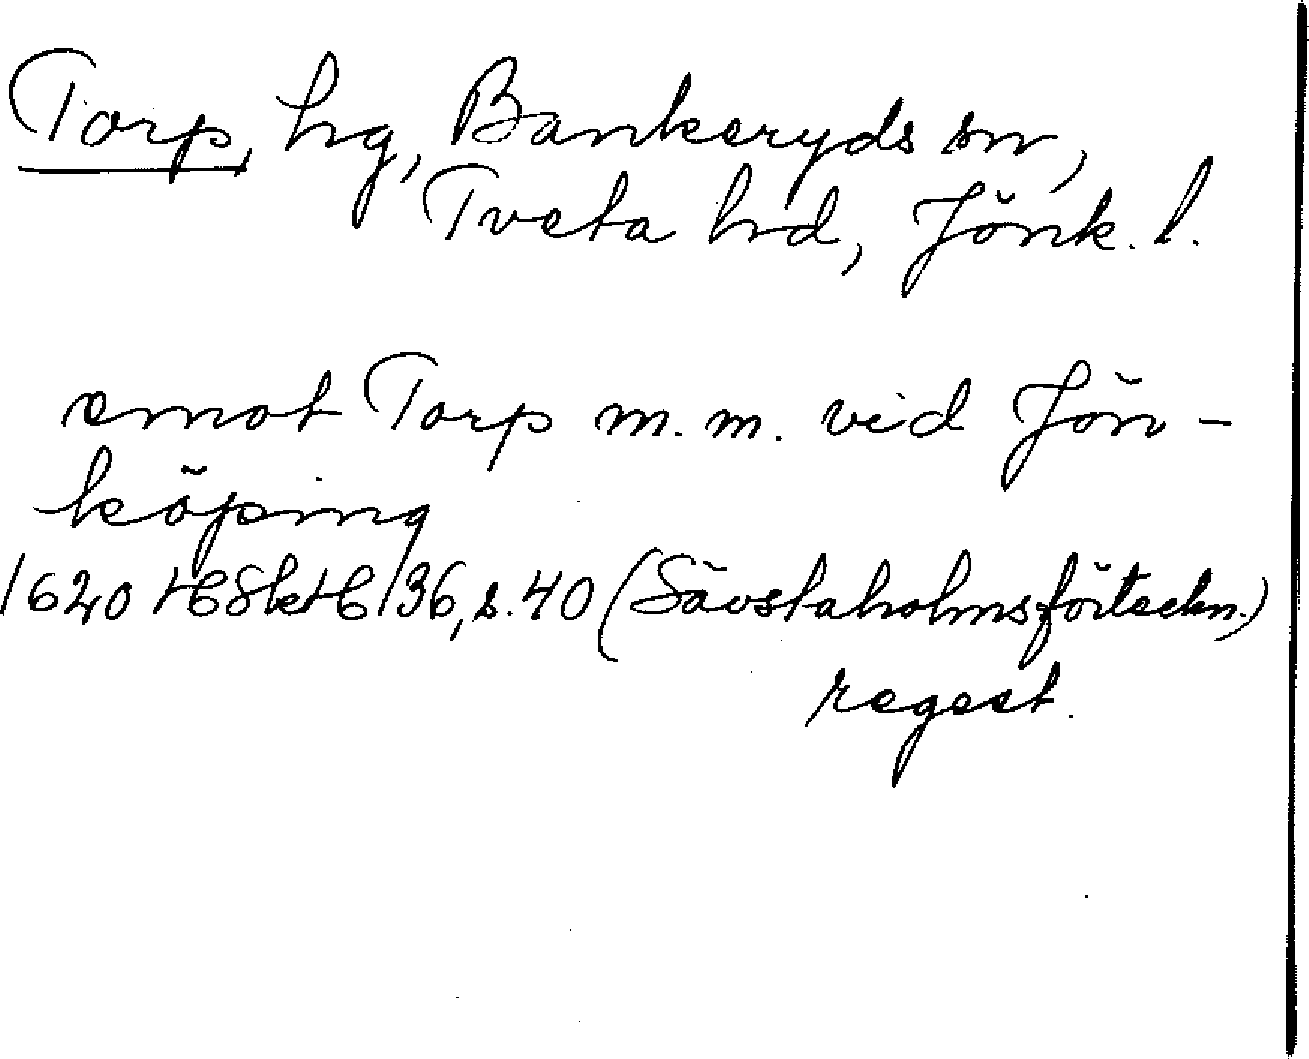 Torp, hg, Bankeryds sn,
Tveta hd, Jönk. l.
emot Torp m. m. vid Jön-
köping
1620 HSkH 136, s. 40 (Sävstaholmsförteckn.)
regest.